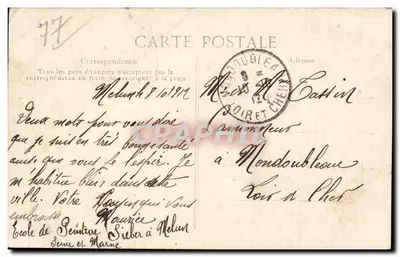 77
CARTE POSTALE
Correspondance
Tous les pays étrangers n'acceptent pas la
correspondance au
Adresse
MONDOUBLEAU
LOIR ET CHER
9
12
Melun le 8 10 1912
Deux mots pour vous dire
que je suis en très bonne santé
ainsi que vous je l'espère. Je
m'habitue bien dans cette
ville. Votre qui vous
embrasse Maurice
Ecole de Peinture Sieber à Melun
Seine et Marne
M et M Tassin
à Mondoubleau
Loir et Cher
CPA